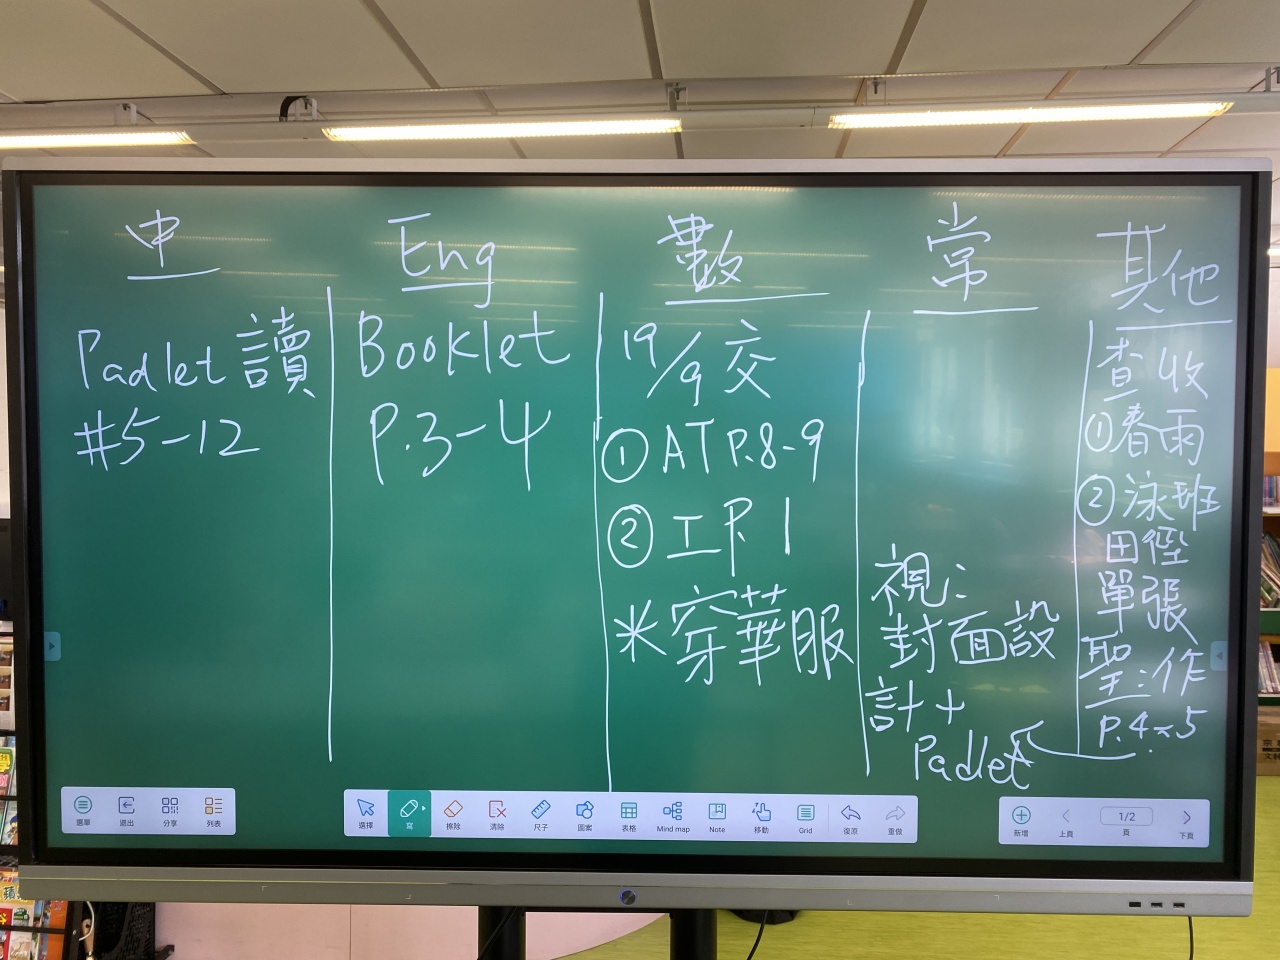 中
Padlet 讀
#5-12
Eng
Booklet
P.3-4
數
19/9 交
① AT P.8-9
② 工 P.1
* 穿華服
常
視:
封面設
計+
Padlet
其他
查收
① 春雨
② 泳班
田徑
單張
聖:作
P.4-5
選單
退出
分享
列表
選擇
寫
擦除
清除
尺子
圖案
表格
Mind map
Note
移動
Grid
復原
重做
新增
上頁
1/2
頁
下頁